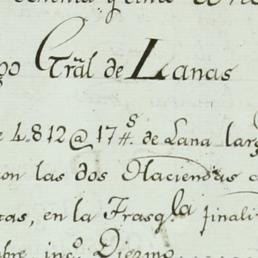 go Gral de Lanas
e 4.812@ 17 #s. de Lana larg
on las dos Haciendas
as, en la Frasq.la finali
bre, inc.o Diezmo